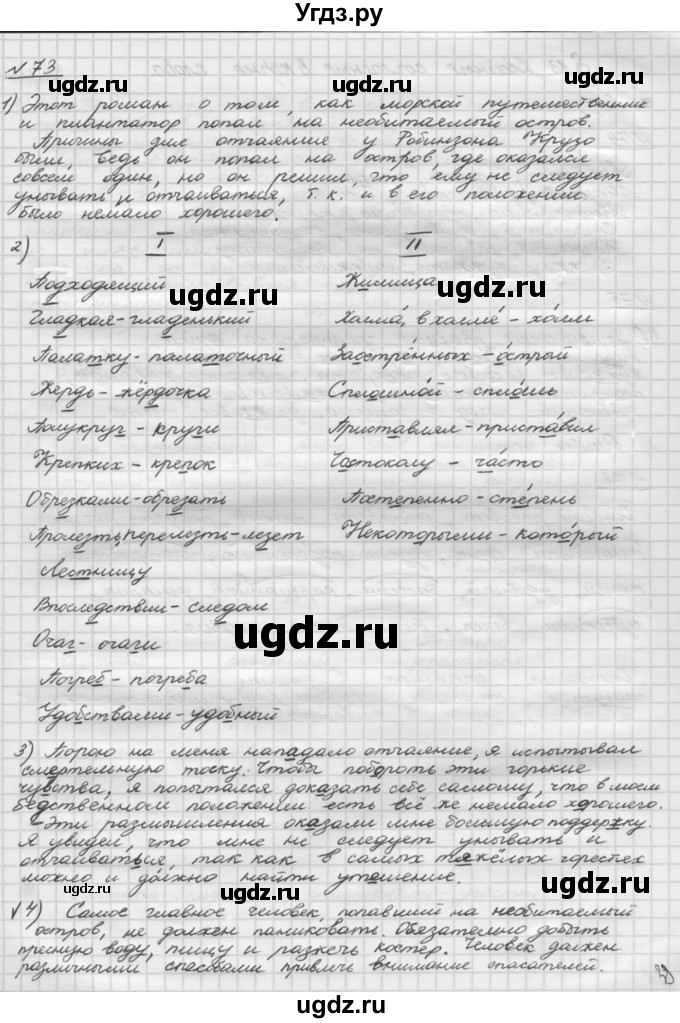 Угдз.ру
№73
1) Этот роман о том, как морской путешественник
и плантатор попал на необитаемый остров.
Причины для отчаяния у Робинзона Крузо
были, ведь он попал на остров, где оказался
совсем один, но он решил, что ему не следует
унывать и отчаиваться, т.к. и в его положении
было немало хорошего.
2) I II
Подходящий Жилища
Гладкая - гладенький Холма, в холме - холм
Палатку - палаточный Заострённых - острый
Жердь - жёрдочка Сплошной - сплошь
Полукруг - круги Приставлял - приставил
Крепких - крепок Частоколу - часто
Обрезками - обрезать Постепенно - степень
Пролезть, перелезть - лезет Некоторыми - который
Лестницу
Впоследствии - следом
Очаг - очаги
Погреб - погреба
Удобствами - удобный
3) Порою на меня нападало отчаяние, я испытывал
смертельную тоску. Чтобы побороть эти горькие
чувства, я попытался доказать себе самому, что в моём
бедственном положении есть всё же немало хорошего.
Эти размышления оказали мне большую поддержку.
Я увидел, что мне не следует унывать и
отчаиваться, так как в самых тяжёлых горестях
можно и должно найти утешение.
4) Самое главное человек, попавший на необитаемый
остров, не должен паниковать. Обязательно добыть
пресную воду, пищу и разжечь костёр. Человек должен
различными способами привлечь внимание спасателей.
ugdz.ru
ugdz.ru
ugdz.ru
ugdz.ru
ugdz.ru
ugdz.ru
ugdz.ru
ugdz.ru
ugdz.ru
ugdz.ru
ugdz.ru
ugdz.ru
ugdz.ru
ugdz.ru